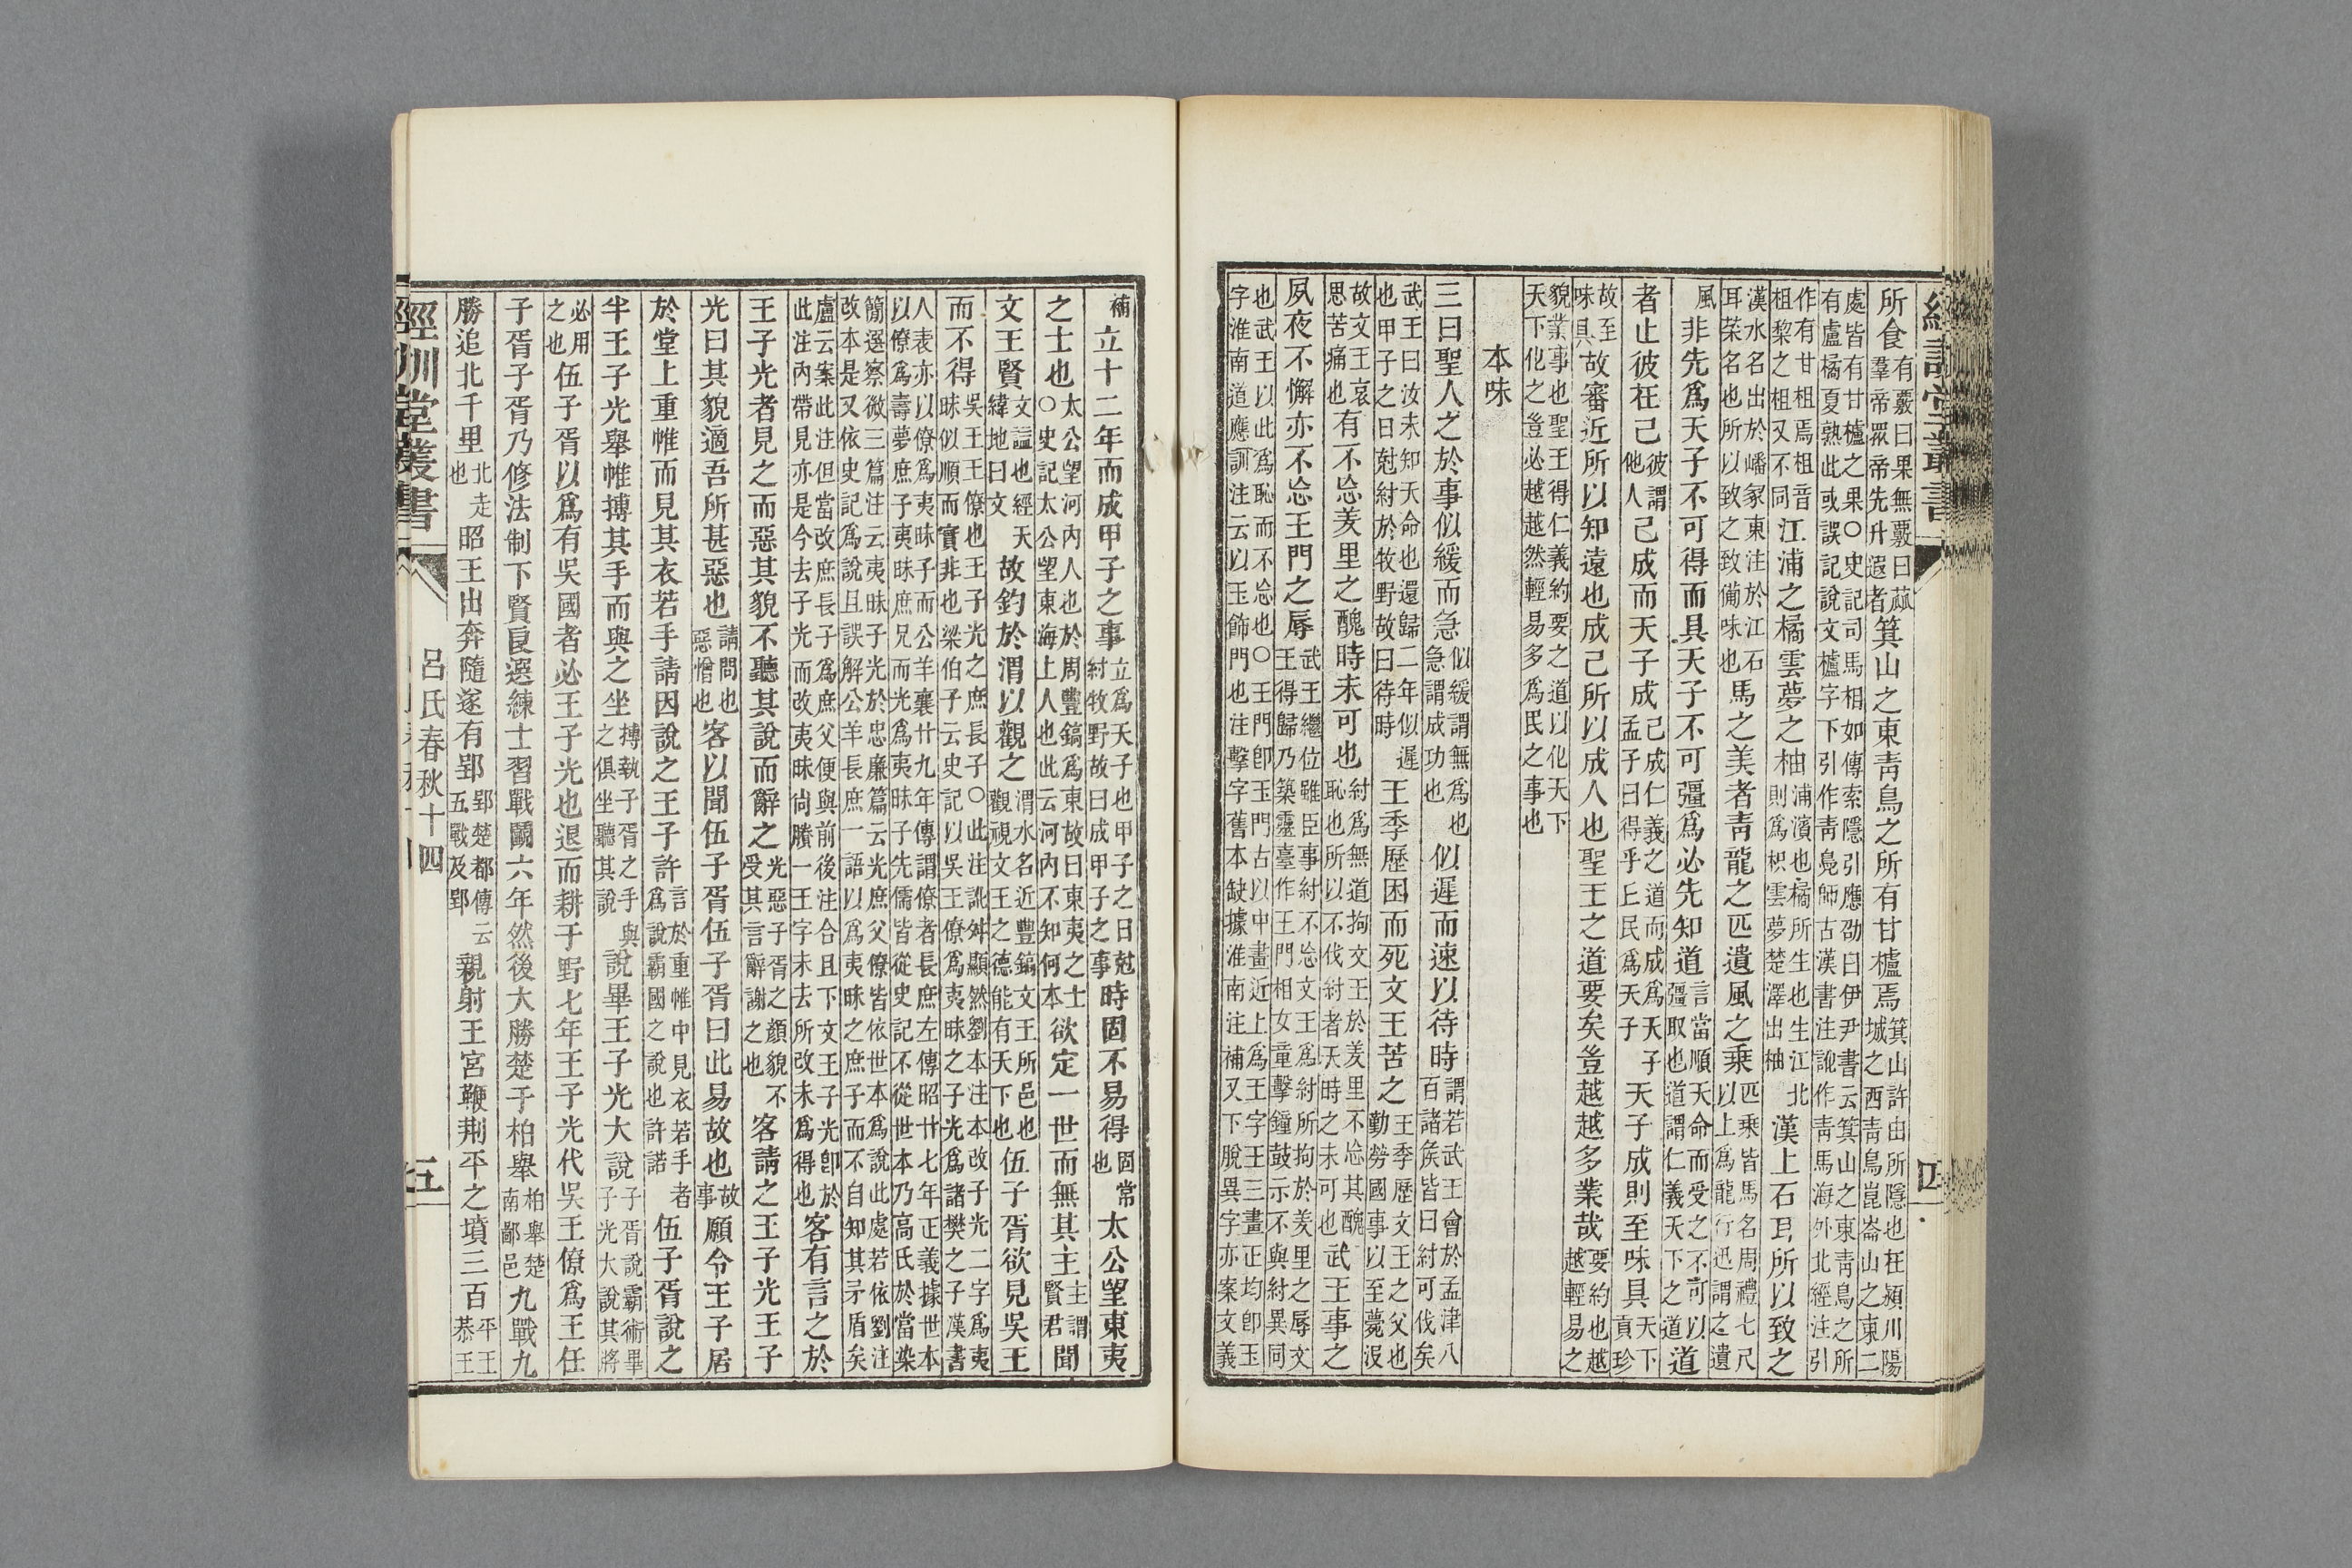 經訓堂叢書 四
所食有覈曰果無覈曰蓏羣帝眾帝先升遐者箕山之東青鳥之所有甘櫨焉箕山許由所隱也在潁川陽城之西青鳥崑崙山之東二
處皆有甘櫨之果○史記司馬相如傳索隱引應劭曰伊尹書云箕山之東青鳥之所有盧橘夏熟此或誤記說文櫨字下引作青鳧師古漢書注訛作青馬海外北經注引
作有甘柤焉柤音柤黎之柤又不同江浦之橘雲夢之柚浦濱也橘所生也生江北則為枳雲夢楚澤出柚漢上石耳所以致之
漢水名出於嶓冢東注於江石耳菜名也所以致之致備味也馬之美者青龍之匹遺風之乘匹乘皆馬名周禮七尺以上為龍行迅謂之遺
風非先爲天子不可得而具天子不可彊爲必先知道言當順天命而受之不可以彊取也道謂仁義天下之道道
者止彼在己彼謂他人己成而天子成己成仁義之道而成爲天子孟子曰得乎丘民爲天子天子成則至味具天下貢珍
故至味具故審近所以知遠也成己所以成人也聖王之道要矣豈越越多業哉要約也越越輕易之
貌業事也聖王得仁義約要之道以化天下天下化之豈必越越然輕易多爲民之事也
本味
三曰聖人之於事似緩而急似緩謂無爲也急謂成功也似遲而速以待時謂若武王會於孟津八百諸侯皆曰紂可伐矣
武王曰汝未知天命也還歸二年似遲也甲子之日尅紂於牧野故曰待時王季歷困而死文王苦之王季歷文王之父也勤勞國事以至薨沒
故文王哀思苦痛也有不忘羑里之醜時未可也紂爲無道拘文王於羑里不忘其醜恥也所以不伐紂者天時之未可也武王事之
夙夜不懈亦不忘王門之辱武王繼位雖臣事紂不忘文王爲紂所拘於羑里之辱文王得歸乃築靈臺作王門相女童擊鐘鼓示不與紂異同
也武王以此爲恥而不忘也○王門卽玉門古以中畫近上爲王字王三畫正均卽玉字淮南道應訓注云以玉飾門也注擊字舊本缺據淮南注補又下脫異字亦案文義
補立十二年而成甲子之事立爲天子也甲子之日尅紂牧野故曰成甲子之事時固不易得固常也太公望東夷
之士也太公望河內人也於周豐鎬爲東故曰東夷之士○史記太公望東海上人也此云河內不知何本欲定一世而無其主主謂賢君聞
文王賢文諡也經天緯地曰文故釣於渭以觀之渭水名近豐鎬文王所邑也觀視文王之德能有天下也伍子胥欲見吳王
而不得吳王王僚也王子光之庶長子○此注訛舛顯然劉本注本改子光二字爲夷昧似順而實非也梁伯子云史記以吳王僚爲夷昧之子光爲諸樊之子漢書
人表亦以僚爲夷昧子而公羊襄廿九年傳謂僚者長庶左傳昭廿七年正義據世本以僚爲壽夢庶子夷昧庶兄而光爲夷昧子先儒皆從史記不從世本乃高氏於當染
簡選察微三篇注云夷昧子光於忠廉篇云光庶父僚皆依世本爲說此處若依劉注改本是又依史記爲說且誤解公羊長庶一語以爲夷昧之庶子而不自知其矛盾矣
盧云案此注但當改庶長子爲庶父便與前後注合且下文王子光卽於此注內帶見亦是今去子光而改夷昧尙賸一王字未去所改未爲得也客有言之於
王子光者見之而惡其貌不聽其說而辭之光惡子胥之顏貌不受其言辭謝之也客請之王子光王子
光曰其貌適吾所甚惡也請問也惡憎也客以聞伍子胥伍子胥曰此易故也故事願令王子居
於堂上重帷而見其衣若手請因說之王子許言於重帷中見衣若手者爲說霸國之說也許諾伍子胥說之
半王子光舉帷搏其手而與之坐搏執子胥之手與之俱坐聽其說說畢王子光大說子胥說霸術畢子光大說其將
必用之也伍子胥以爲有吳國者必王子光也退而耕于野七年王子光代吳王僚爲王任
子胥子胥乃修法制下賢良選練士習戰鬭六年然後大勝楚于柏舉柏舉楚南鄙邑九戰九
勝追北千里北走也昭王出奔隨遂有郢郢楚都傳云五戰及郢親射王宮鞭荆平之墳三百平王恭王
經訓堂叢書 呂氏春秋十四 五